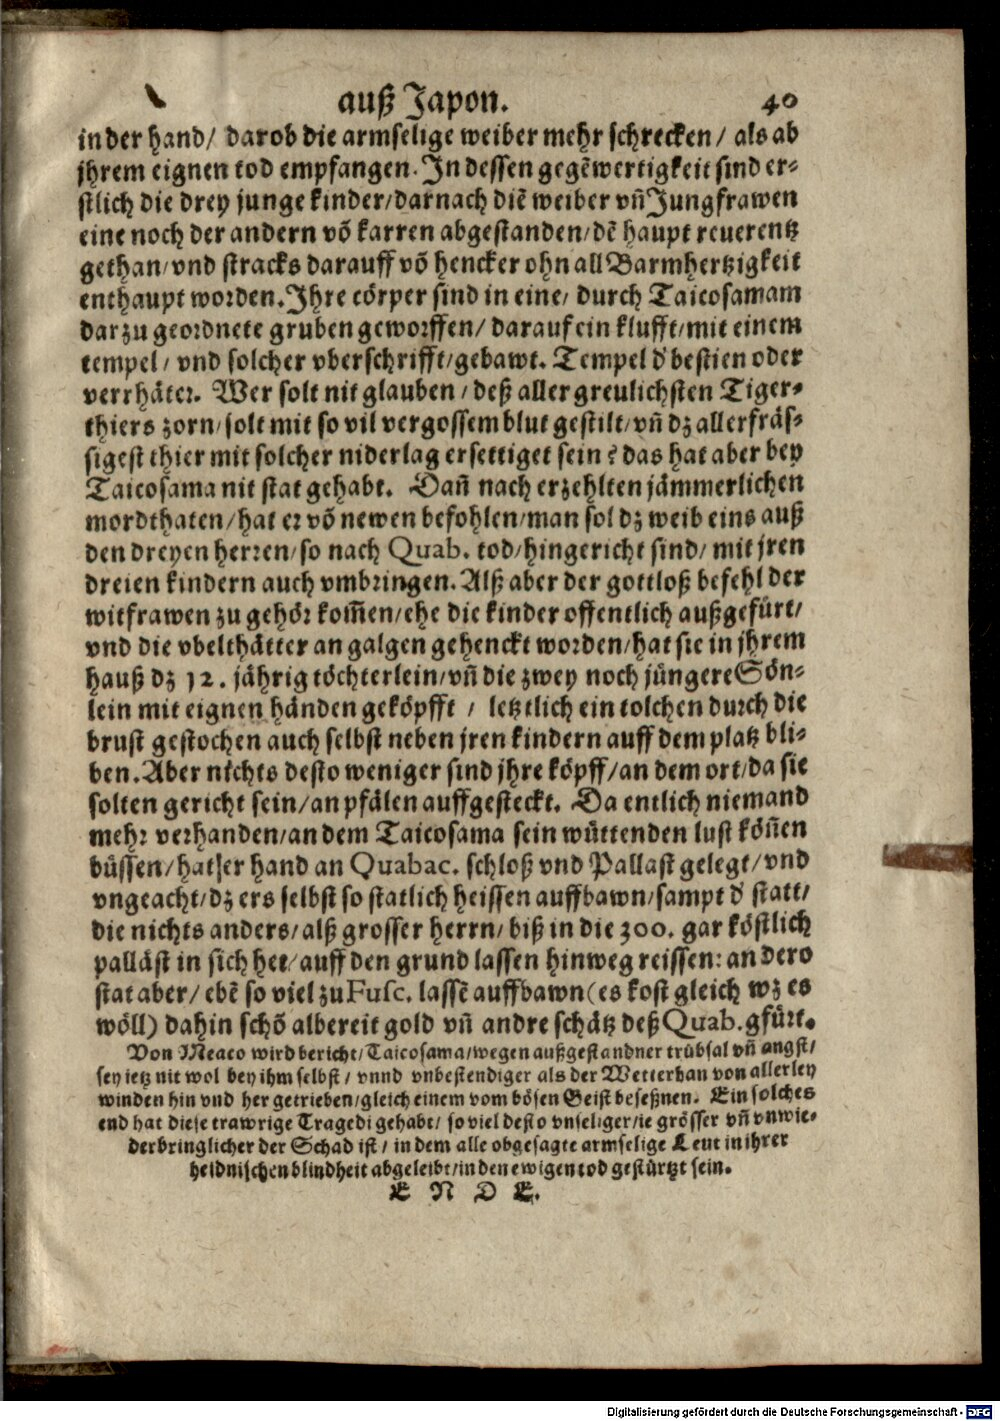 auß Japon. 40
in der hand/ darob die armselige weiber mehr schrecken/ als ab
jhrem eignen tod empfangen. In dessen gegẽwertigkeit sind er-
stlich die drey junge kinder/darnach diẽ weiber vñ Jungfrawen
eine noch der andern võ karren abgestanden/dẽ haupt reuerentz
gethan/vnd stracks darauff võ hencker ohn all Barmhertzigkeit
enthaupt worden. Ihre cörper sind in eine/ durch Taicosamam
darzu geordnete gruben geworffen/ darauf ein klufft/mit einem
tempel/ vnd solcher vberschrifft/gebawt. Tempel d' bestien oder
verrhäter. Wer solt nit glauben/ deß aller greulichsten Tiger-
thiers zorn/solt mit so vil vergossem blut gestilt/vñ dz allerfräs-
sigest thier mit solcher niderlag ersettiget sein? das hat aber bey
Taicosama nit stat gehabt. Dañ nach erzehlten jämmerlichen
mordthaten/hat er võ newen befohlen/man sol dz weib eins auß
den dreyen herren/so nach Quab. tod/hingericht sind/ mit jren
dreien kindern auch vmbringen. Alß aber der gottloß befehl der
witfrawen zu gehör kom̃en/ehe die kinder offentlich außgefürt/
vnd die vbelthätter an galgen gehenckt worden/hat sie in jhrem
hauß dz 12. jährig töchterlein/vñ die zwey noch jüngere Sön-
lein mit eignen händen geköpfft / letztlich ein tolchen durch die
brust gestochen auch selbst neben jren kindern auff dem platz bli-
ben. Aber nichts desto weniger sind jhre köpff/an dem ort/da sie
solten gericht sein/an pfälen auffgesteckt. Da entlich niemand
mehr verhanden/an dem Taicosama sein wüttenden lust kön̄en
büssen/hat er hand an Quabac. schloß vnd Pallast gelegt/vnd
vngeacht/dz ers selbst so statlich heissen auffbawn/sampt d' statt/
die nichts anders/alß grosser herrn/biß in die 300. gar köstlich
palläst in sich het/auff den grund lassen hinweg reissen: an dero
stat aber/ ebẽ so viel zu Fusc. lassẽ auffbawn(es kost gleich wz es
wöll) dahin schõ albereit gold vñ andre schätz deß Quab. gfürt.
Von Meaco wird bericht/Taicosama/wegen außgestandner trübsal vñ angst/
sey ietz nit wol bey ihm selbst/ vnnd vnbestendiger als der Wetterhan von allerley
winden hin vnd her getrieben/gleich einem vom bösen Geist beseßnen. Ein solches
end hat diese trawrige Tragedi gehabt/ so viel desto vnseliger/ie grösser vñ vnwie-
derbringlicher der Schad ist/ in dem alle obgesagte armselige Leut in ihrer
heidnischen blindheit abgeleibt/in den ewigen tod gestürtzt sein.
E N D E.
Digitalisierung gefördert durch die Deutsche Forschungsgemeinschaft - DFG